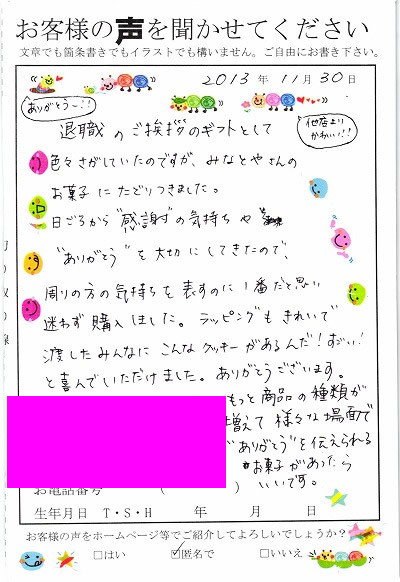 お客様の声を聞かせてください
文章でも箇条書きでもイラストでも構いません。ご自由にお書き下さい。
2013年 11月30日
ありがとう〜!!
他店より
かわいい!!
退職のご挨拶のギフトとして
色々さがしていたのですが、みなとやさんの
お菓子にたどりつきました。
日ごろから"感謝"の気持ちや
"ありがとう"を大切にしてきたので、
周りの方の気持ちを表すのに1番だと思い
迷わず購入しました。ラッピングもきれいで
渡したみんなにこんなクッキーがあるんだ!すごい!
と喜んでいただけました。ありがとうございます。
もっと商品の種類が
増えて様々な場面で
"ありがとう"を伝えられる
お菓子があったら
いいです。
お電話番号 ( )
生年月日 T・S・H 年 月 日
お客様の声をホームページ等でご紹介してよろしいでしょうか?
□はい ☑匿名で □いいえ